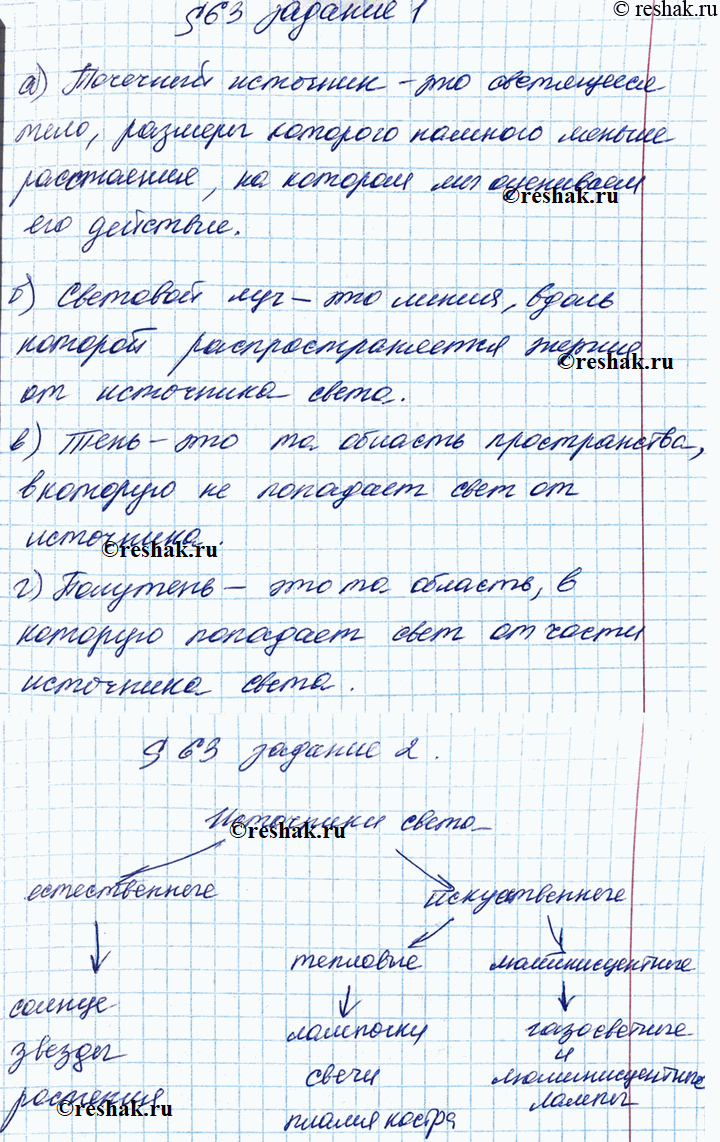 reshak.ru
§63 задание 1
а) Точечный источник – это светящееся
тело, размеры которого намного меньше
расстояния, на котором мы оцениваем
©reshak.ru
его действие.
б) Световой луч – это линия, вдоль
которой распространяется энергия
©reshak.ru
от источника света.
в) Тень – это та область пространства,
в которую не попадает свет от
источника.
©reshak.ru
г) Полутень – это та область, в
которую попадает свет от части
источника света.
§ 63 задание 2.
Источники света
©reshak.ru
естественные искуственные
тепловые люминисцентные
солнце лампочки газосветные
звезды свечи и люминисцентные
растения пламя костра лампы
©reshak.ru